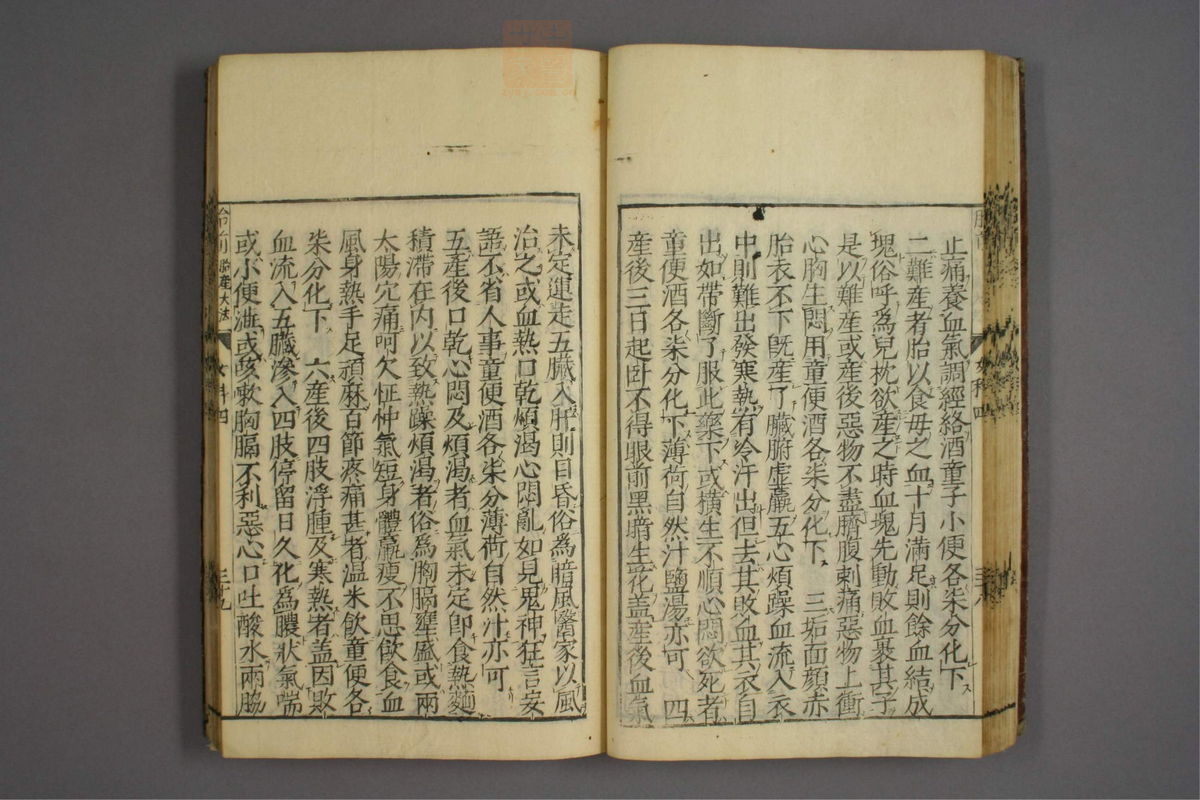 止痛養血氣調經絡酒童子小便各柒分化下
二難産者胎以食母之血十月滿足則餘血結成
塊俗呼爲兒枕欲産之時血塊先動敗血裹其子
是以難産或産後惡物不盡臍腹刺痛惡物上衝
心胸生悶用童便酒各柒分化下 三垢面顔赤
胎衣不下既産了臓腑虚羸五心煩躁血流入衣
中則難出發寒熱有冷汗出但去其敗血其衣自
出如帶斷了服此藥下或横生不順心悶欲死者
童便酒各柒分化下薄荷自然汁鹽湯亦可 四
産後三日起卧不得眼前黑暗生花盖産後血氣
未定運走五臓入肝則目昏俗為暗風醫家以風
治之或血熱口乾煩渴心悶亂如見鬼神狂言妄
語不省人事童便酒各柒分薄荷自然汁亦可
五産後口乾心悶及煩渴者血氣未定即食熱麵
積滯在内以致熱躁煩渴者俗為胸膈壅盛或兩
太陽穴痛呵欠怔忡氣短身體羸瘦不思飲食血
風身熱手足頑麻百節疼痛甚者温米飲童便各
柒分化下 六産後四肢浮腫及寒熱者盖因敗
血流入五臓滲入四肢停留日久化為膿狀氣喘
或小便澁或咳嗽胸膈不利惡心口吐酸水兩脇
胎産大法
女科四
三十九